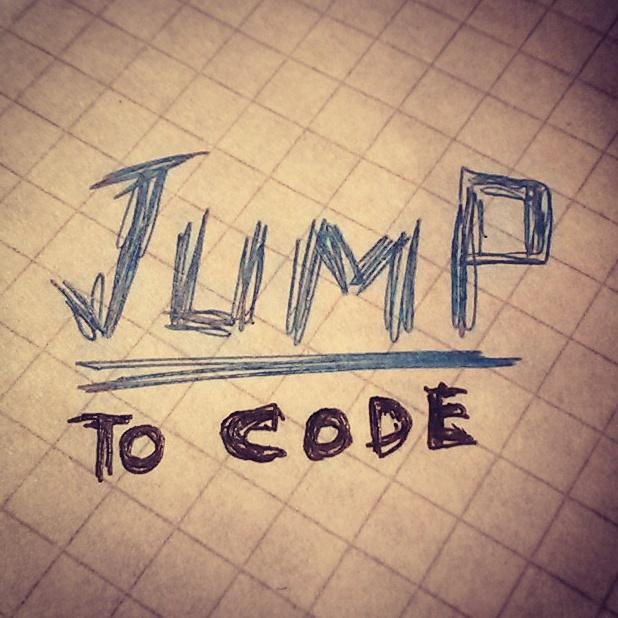 JUMP
TO CODE